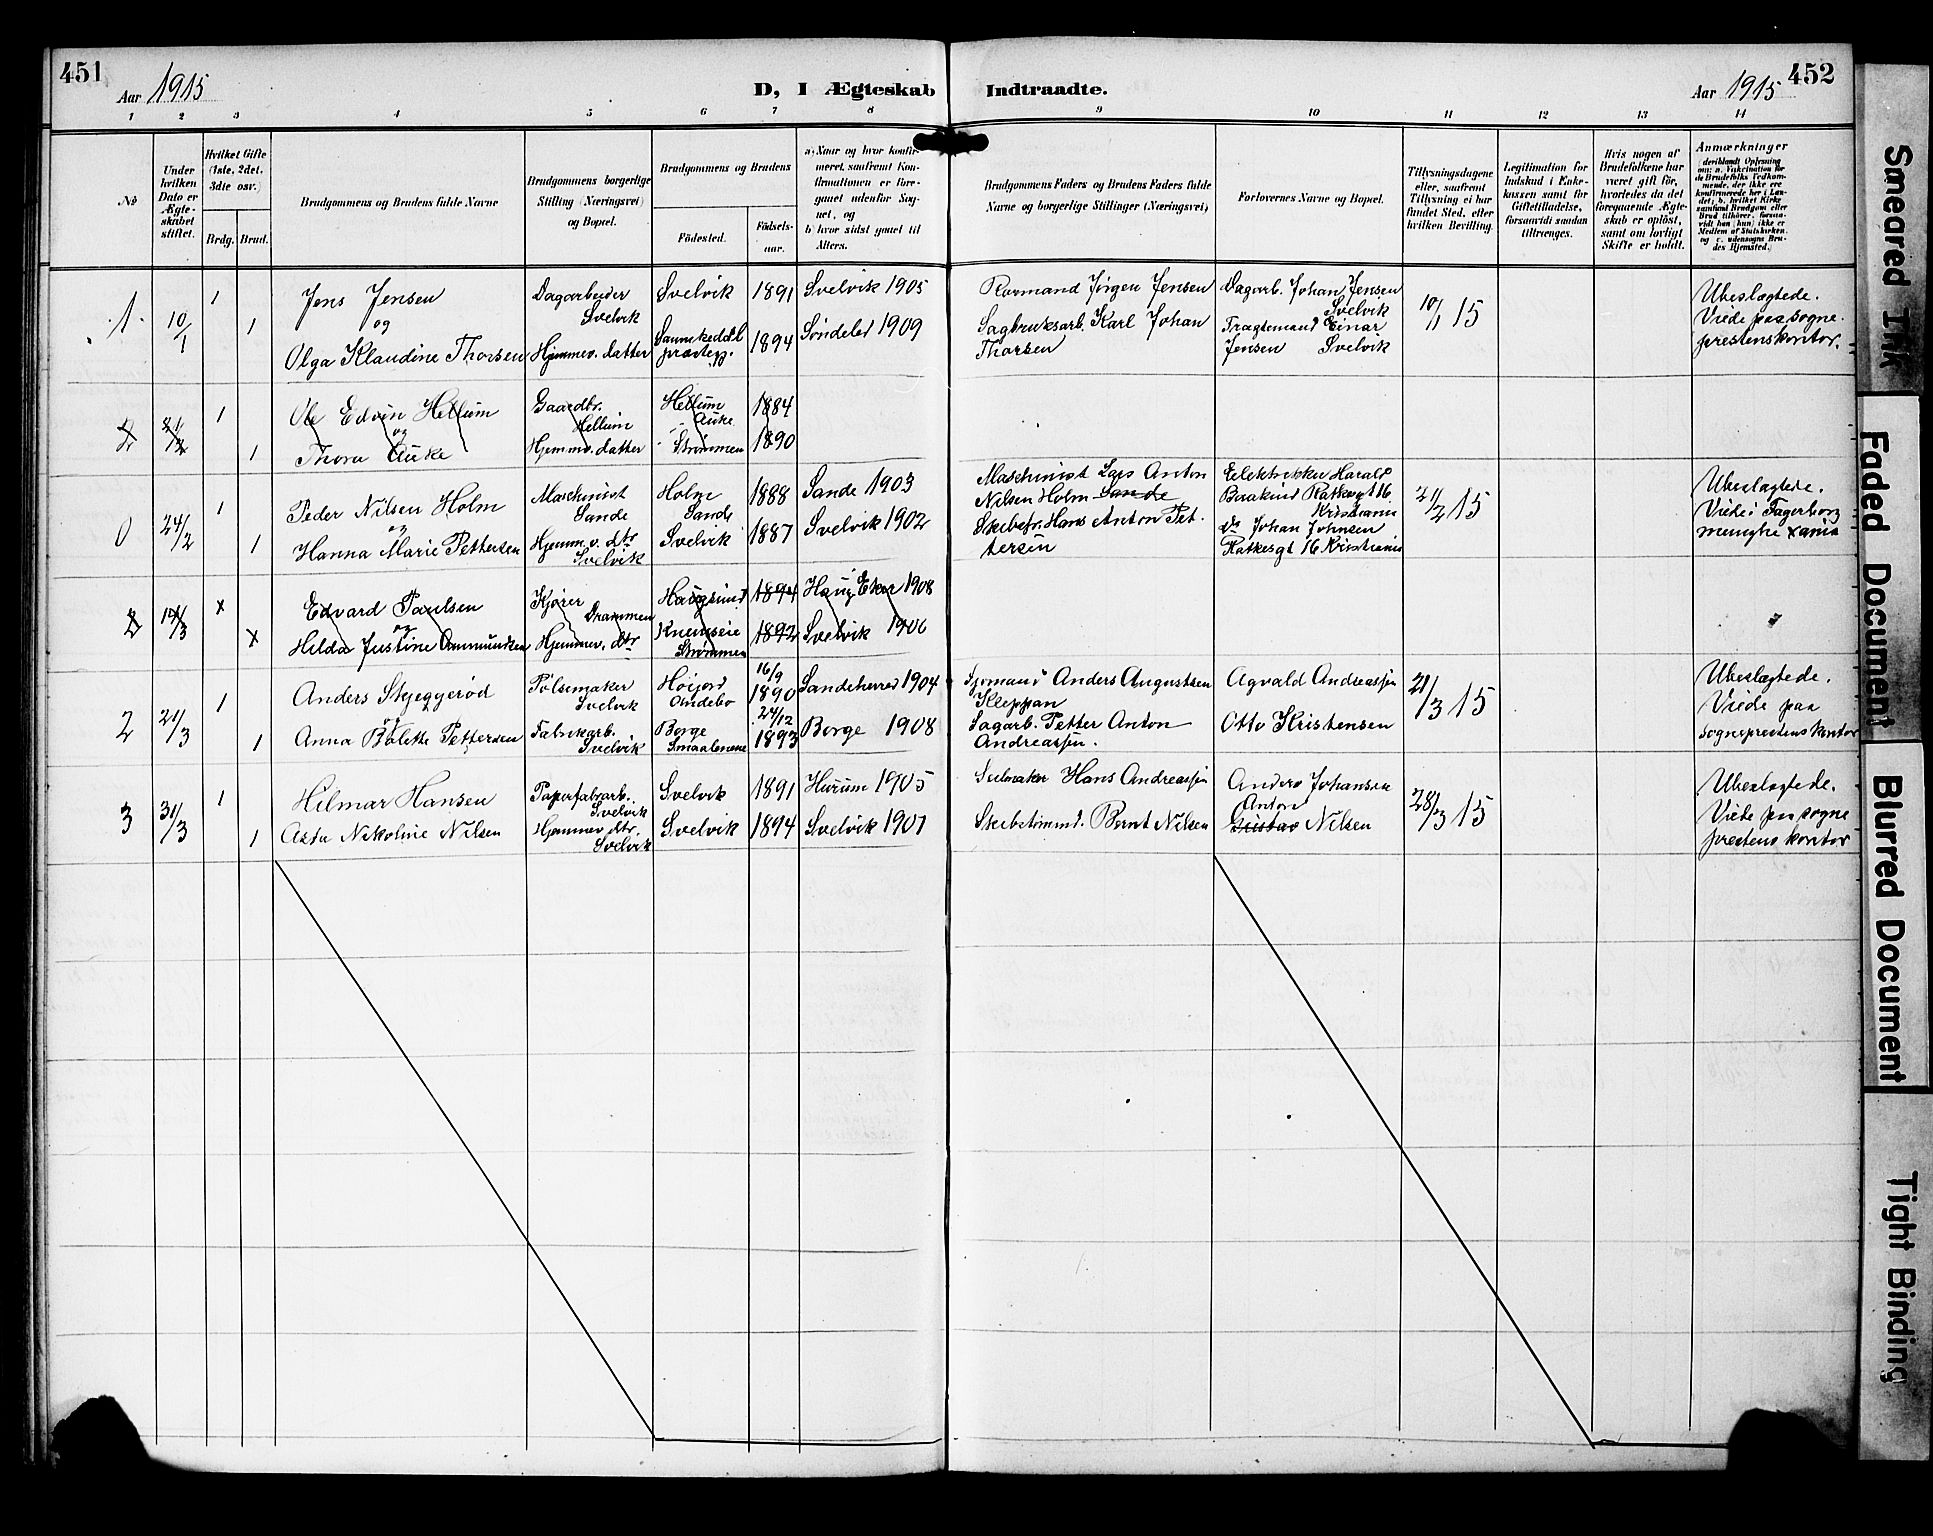 451
Aar 1915
D, I Ægteskab Indtraadte.
Aar 1915
452
1 2 3 4 5 6 7 8 9 10 11 12 13 14
No
Under hvilken Dato er Ægteskabet stiftet.
Hvilket Gifte (1ste, 2det, 3die osv.)
Brdg. Brud.
Brudgommens og Brudens fulde Navne
Brudgommens borgerlige Stilling (Næringsvei) og Bopæl.
Brudgommens og Brudens
Fødested.
Fødselsaar.
a) Naar og hvor konfirmeret, saafremt Konfirmationen er foregaaet udenfor Sognet, og
b) hvor sidst gaaet til Alters.
Brudgommens Faders og Brudens Faders fulde Navne og borgerlige Stillinger (Næringsvei)
Forlovernes Navne og Bopæl.
Tillysningsdagene eller, saafremt Tillysning ei har fundet Sted, efter hvilken Bevilling.
Legitimation for Indskud i Enkekassen samt for Giftetilladelse, forsaavidt saadan tiltrænges.
Hvis nogen af Brudefolkene har været gift før, hvorledes da det foregaaende Ægteskab er opløst, samt om lovligt Skifte er holdt.
Anmærkninger
1 10/1 1 1
Jens Jensen
og
Olga Klaudine Thorsen
Dagarbeider
Svelvik
Hjemmev. datter
Svelvik
1891
1894
Svelvik 1905
Søndeled 1909
Jørgen Jensen
Sagbruksarb. Karl Johan
Thorsen
Dagarb. Johan Jensen
Svelvik
Einar
Jensen Svelvik
10/1 15
Ubeslægtede.
Viede paa sogne-
prestens kontor.
2 21/2 1 1
Ole Edvin Hellum
og
Thora Auke
Gaardbr.
Hellum
Hjemmv. datter
Hellum
Auke
Strømmen
1884
1890
0 24/2 1 1
Peder Nilsen Holm
og
Hanna Marie Pettersen
Maschinist
Sande
Hjemm. v. dtr
Svelvik
Holm
Sande
Svelvik
1888
1887
Sande 1903
Svelvik 1902
Maschinist Lars Anton
Nilsen Holm Sande
Skibsfr. Hans Anton Pet-
tersen
Elektriker Harald
Ratkesgt 16
Kristiania
do Johan Johnsen
Ratkesgt 16 Kristiania
21/2 15
Ubeslægtede.
Viede i Fagerborg
menighe Xania
2 14/3 x x
Edvard Paulsen
og
Hilda Justine Ammundsen
Kjører
Drammen
Hjemmev. dtr
Haugsund
Strømmen
1894
1892
Haug, Eker 1908
Svelvik 1906
2 21/3 1 1
Anders Skjeggerød
og
Anna Bolette Pettersen
Pølsemaker
Svelvik
Fabrikarb.
Svelvik
Høijord
Andebo
Borge
Smaalenene
16/9
1890
24/12
1893
Sandeherred 1904
Borge 1908
Anders Augustsen
Kleppan
Sagarb. Petter Anton
Andreassen.
Agvald Andreassen
Otto Kristensen
21/3 15
Ubeslægtede.
Viede paa
sogneprestens kontor
3 31/3 1 1
Hilmar Hansen
Asta Nikoline Nilsen
Papirfabrarb.
Svelvik
Hjemmev. dtr.
Svelvik
Svelvik
Svelvik
1891
1894
Hurum 1905
Svelvik 1907
Seilmaker Hans Andreassen
Skibstimmd. Bernt Nilsen
Anders Johansen
Anton
Gustav Nilsen
28/3 15
Ubeslægtede.
Viede paa sogne
prestens kontor
Smeared Ink
Faded Document
Blurred Document
Tight Binding